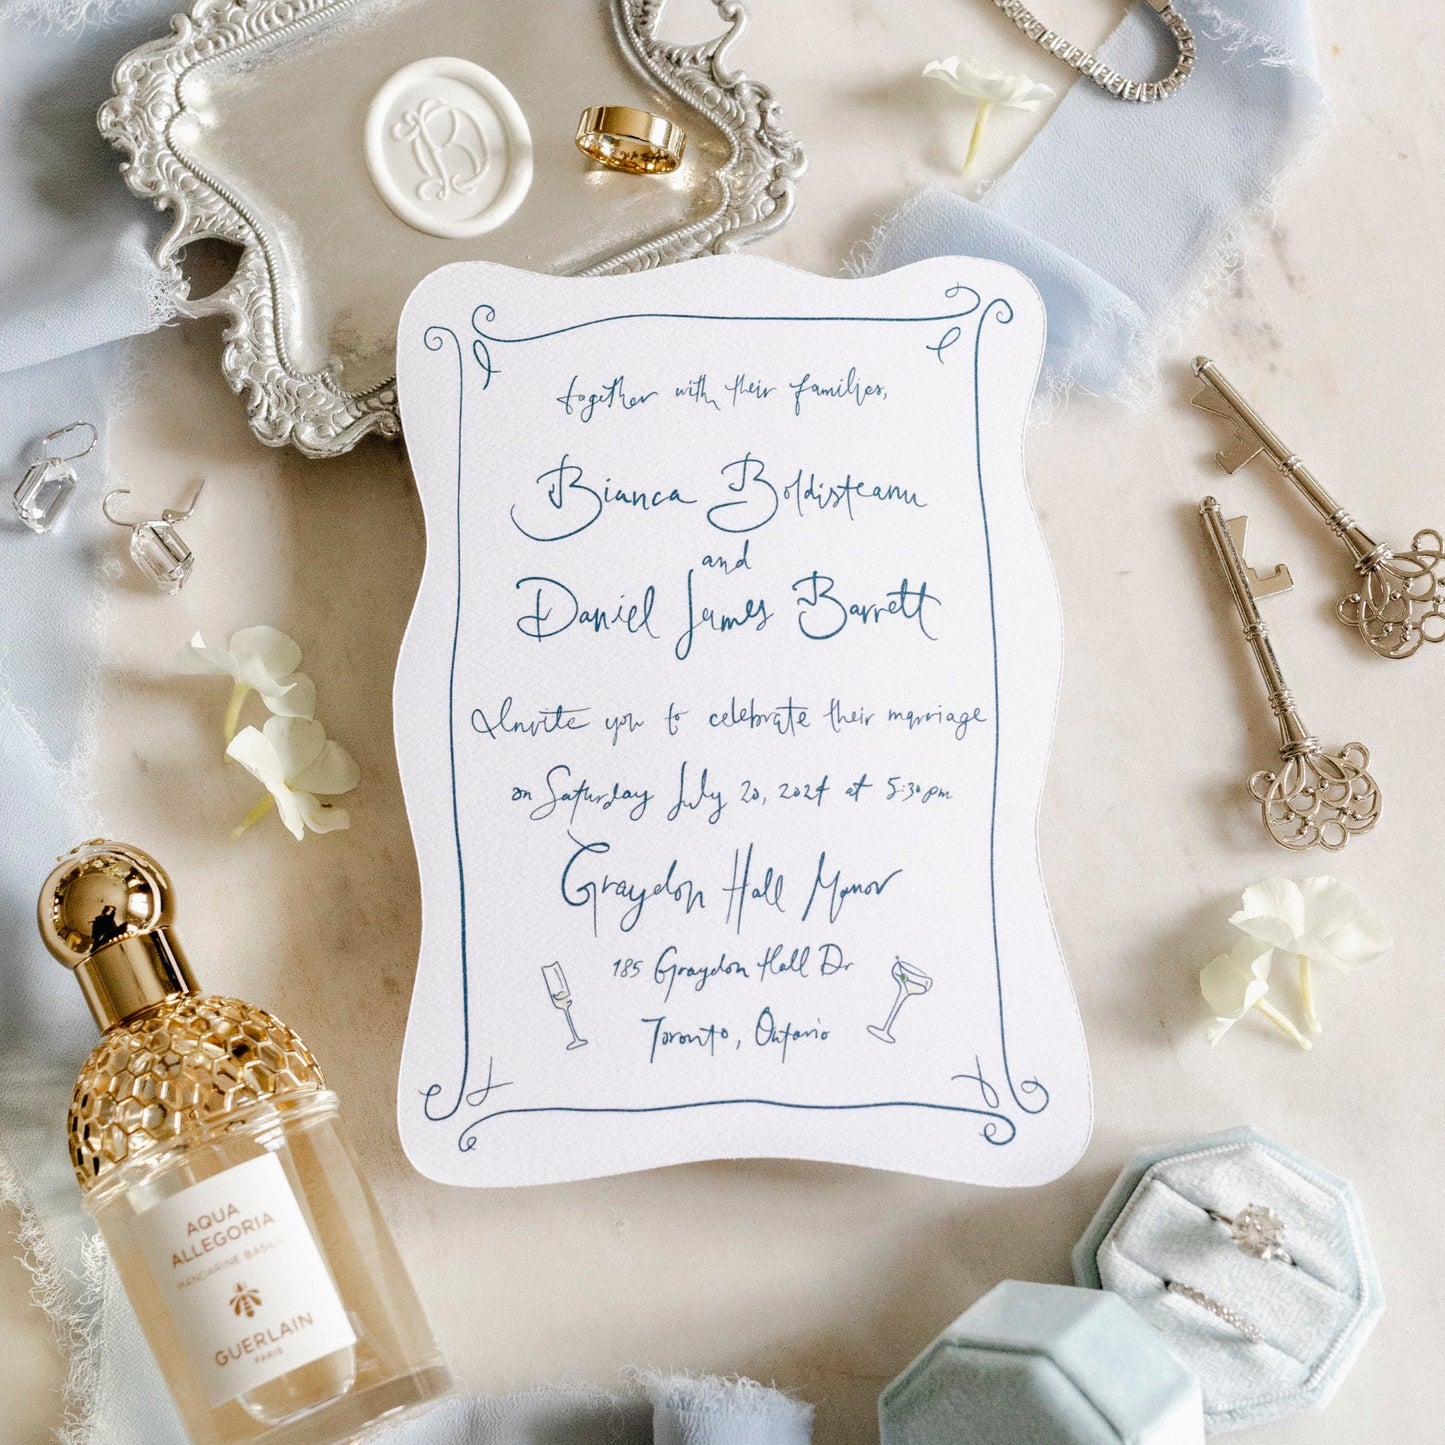 B
together with their families,
Bianca Boldisteanu
and
Daniel James Barrett
Invite you to celebrate their marriage
on Saturday July 20, 2024 at 5:30pm
Graydon Hall Manor
185 Graydon Hall Dr
Toronto, Ontario
AQUA
ALLEGORIA
MANDARINE BASILIC
GUERLAIN
PARIS